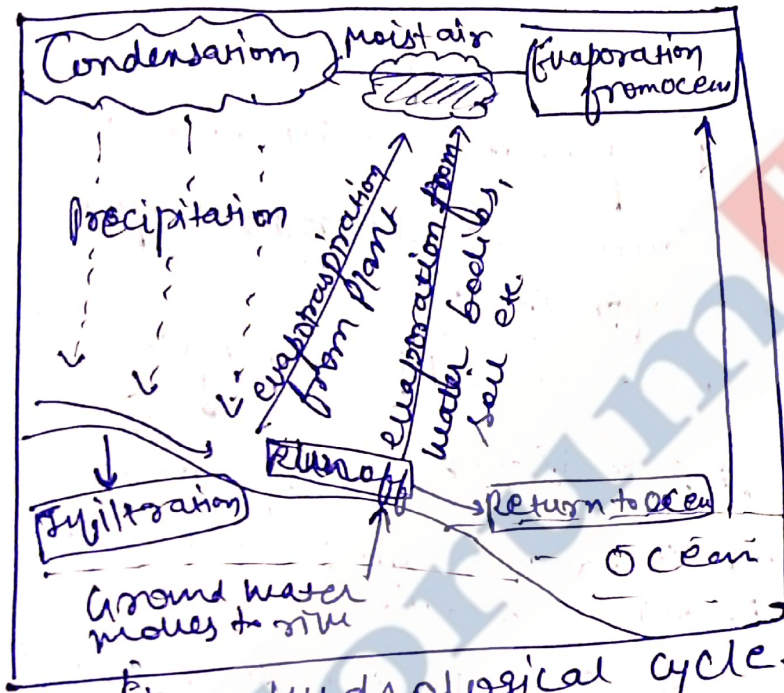 Condensation
Moist air
Evaporation
from ocean
Precipitation
evapotraspiration
from plant
evaporation from
water bodies,
soil etc.
Runoff
Infiltration
Return to ocen
Ocean
Ground water
moves to
hydrological cycle.